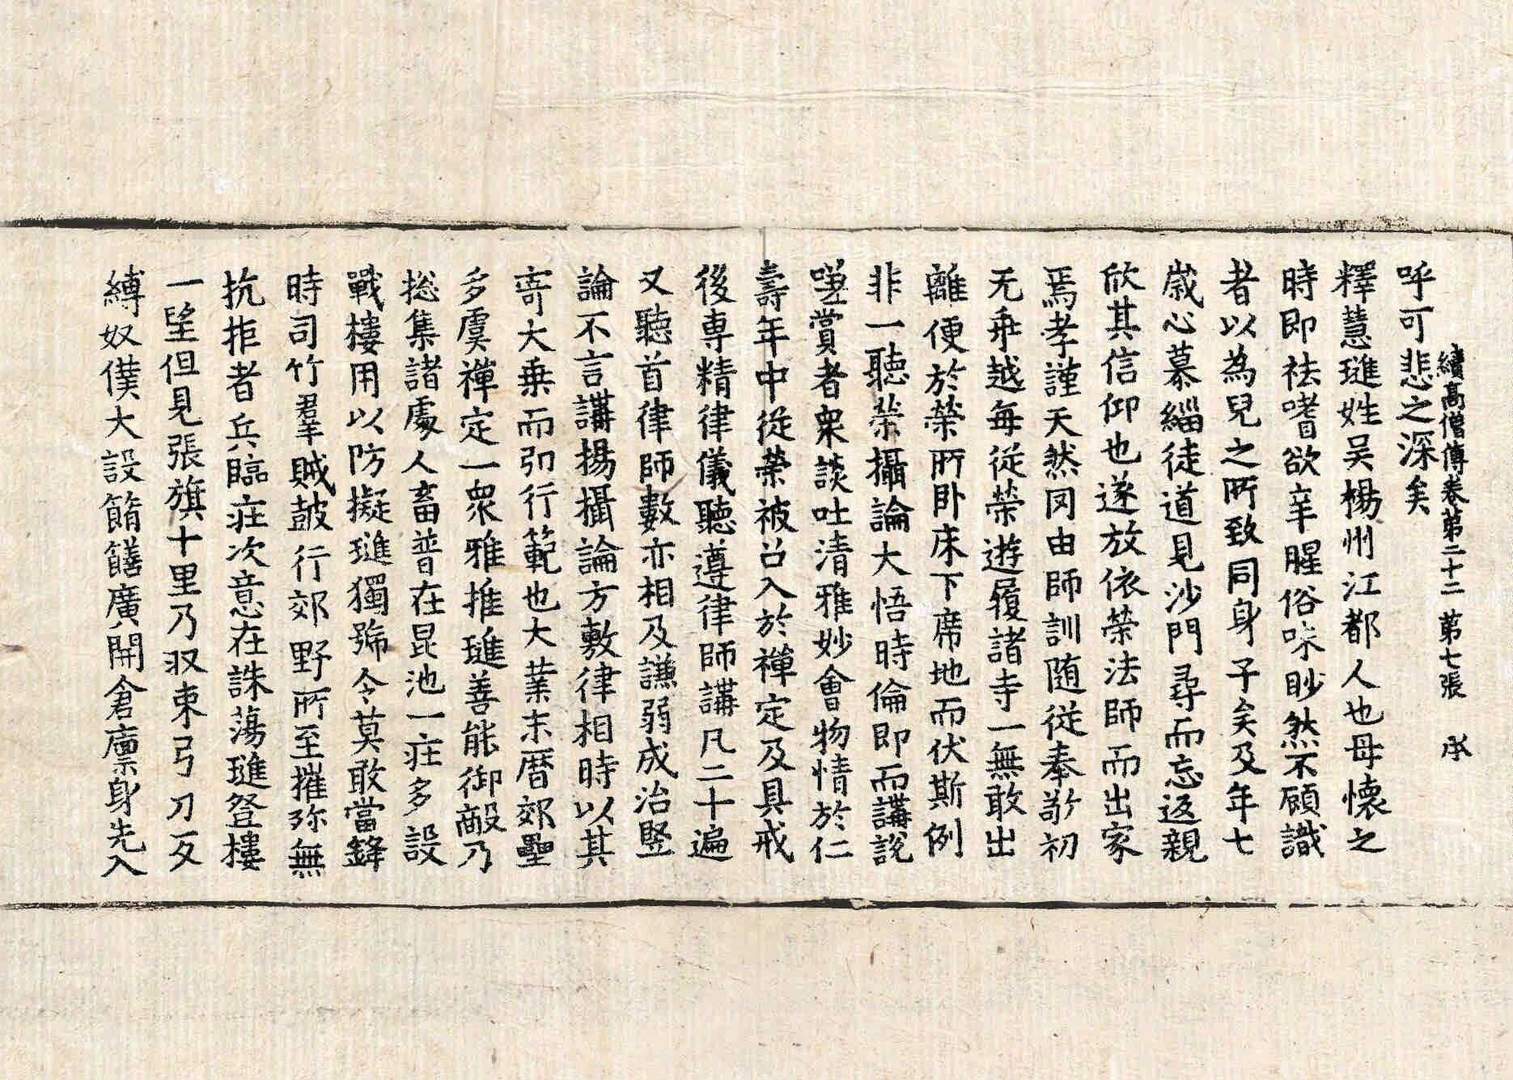 續高僧傳卷第二十二 第七張 承
呼可悲之深矣
釋慧璡姓吴楊州江都人也母懷之
時即祛嗜欲辛腥俗味眇然不顧識
者以為兒之所致同身子矣及年七
歲心慕緇徒道見沙門尋而忘返親
欣其信仰也遂放依榮法師而出家
焉孝謹天然罔由師訓随從奉敬初
无乖越每從榮遊履諸寺一無敢出
離便於榮所卧床下席地而伏斯例
非一聽榮攝論大悟時倫即而講說
嗟賞者衆談吐清雅妙會物情於仁
壽年中從榮被召入於禪定及具戒
後専精律儀聽遵律師講凡二十遍
又聽首律師數亦相及謙弱成治竪
論不言講揚攝論方敷律相時以其
寄大乗而引行範也大業末曆郊壘
多虞禪定一衆雅推璡善能御敵乃
捴集諸處人畜普在昆池一莊多設
戰樓用以防擬璡獨號令莫敢當鋒
時司竹羣賊皷行郊野所至摧殄無
抗拒者兵臨莊次意在誅蕩璡登樓
一望但見張旗十里乃収束弓刀反
縛奴僕大設餚饍廣開倉廪身先入